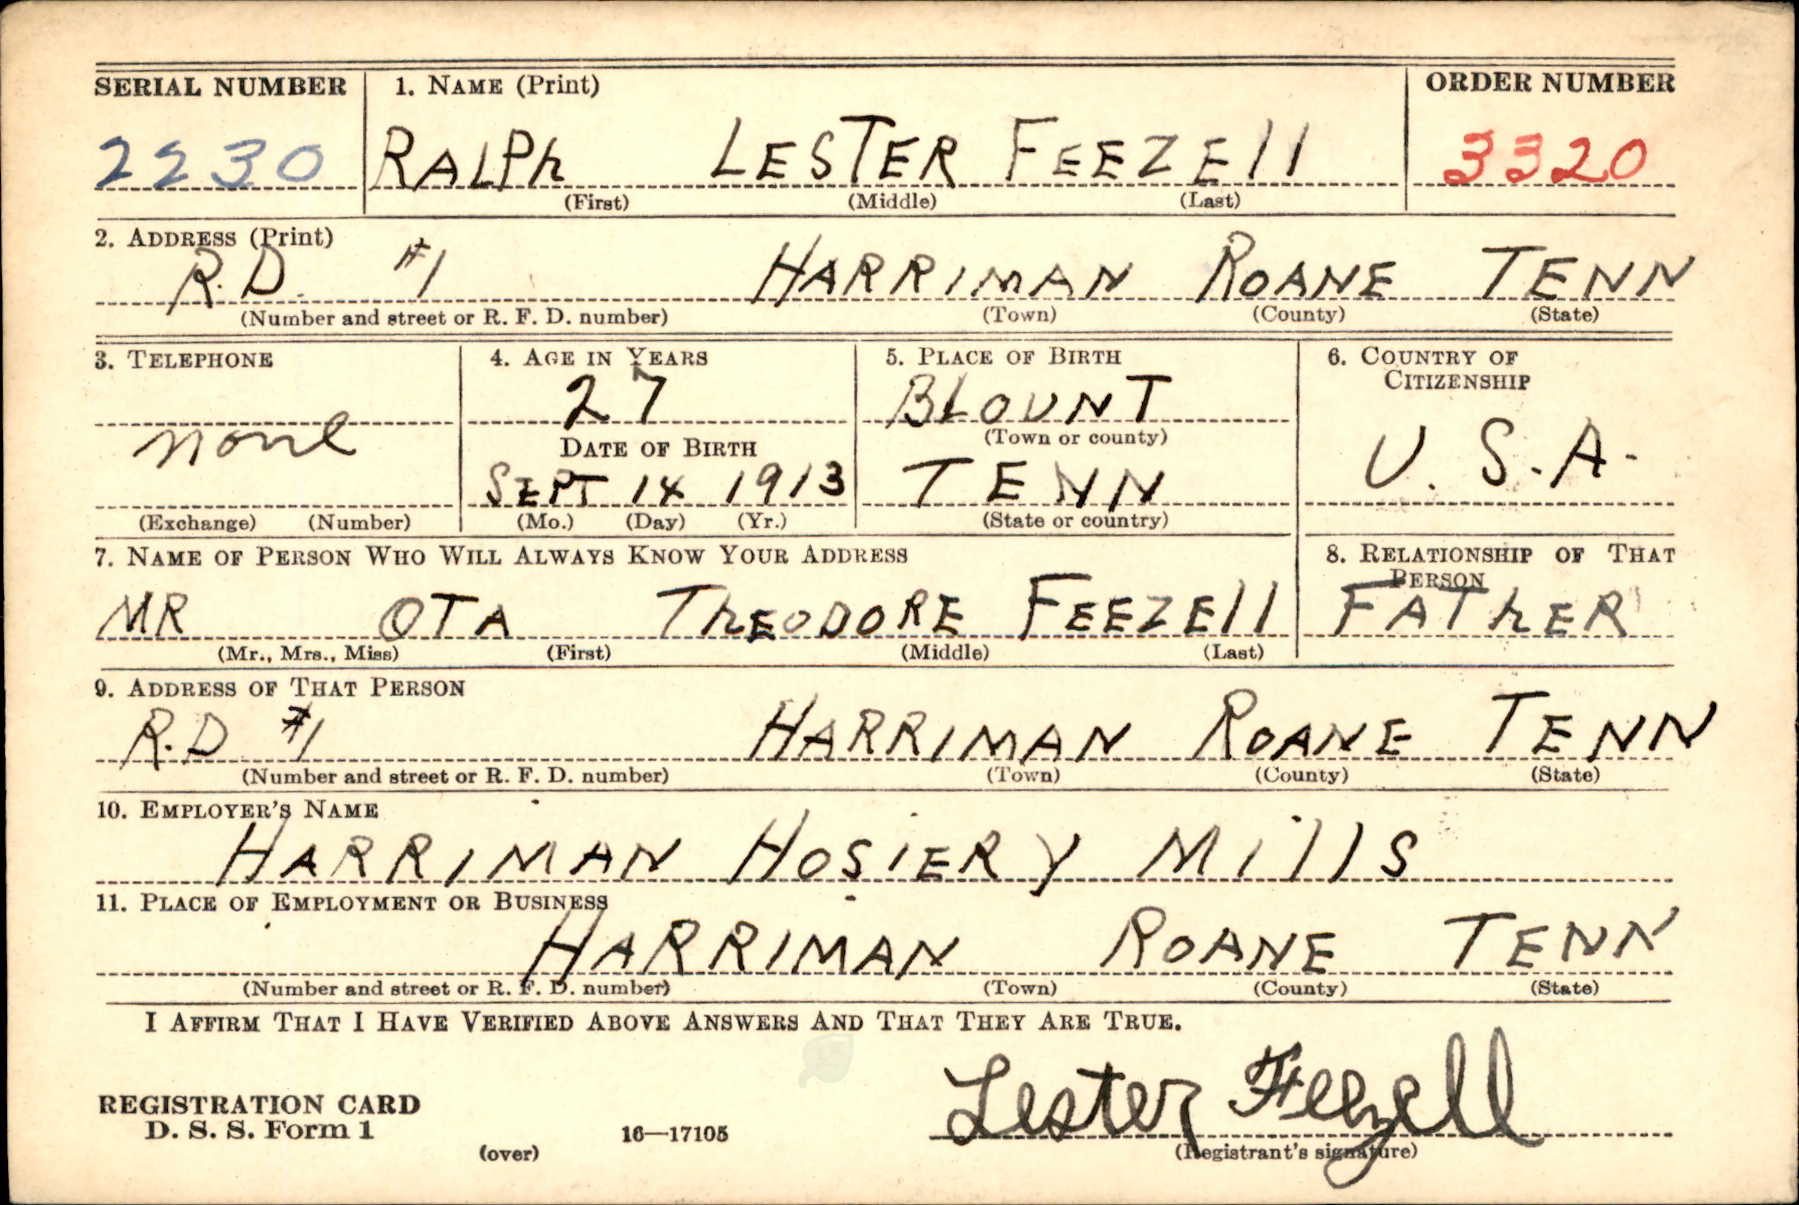 SERIAL NUMBER 1. NAME (Print) ORDER NUMBER
2230 RALPh LESTER FEEZEll 3320
(First) (Middle) (Last)
2. ADDRESS (Print)
R.D. #1 HARRIMAN ROANE TENN
(Number and street or R. F. D. number) (Town) (County) (State)
3. TELEPHONE 4. AGE IN YEARS 5. PLACE OF BIRTH 6. COUNTRY OF CITIZENSHIP
none 27 BLOUNT U. S. A.
DATE OF BIRTH (Town or county)
SEPT 14 1913 TENN
(Exchange) (Number) (Mo.) (Day) (Yr.) (State or country)
7. NAME OF PERSON WHO WILL ALWAYS KNOW YOUR ADDRESS 8. RELATIONSHIP OF THAT PERSON
MR OTA ThEODORE FEEZEll FAThER
(Mr., Mrs., Miss) (First) (Middle) (Last)
9. ADDRESS OF THAT PERSON
R.D #1 HARRIMAN ROANE TENN
(Number and street or R. F. D. number) (Town) (County) (State)
10. EMPLOYER'S NAME
HARRIMAN HOSiERY Mills
11. PLACE OF EMPLOYMENT OR BUSINESS
HARRIMAN ROANE TENN
(Number and street or R. F. D. number) (Town) (County) (State)
I AFFIRM THAT I HAVE VERIFIED ABOVE ANSWERS AND THAT THEY ARE TRUE.
Lester Feezell
REGISTRATION CARD
D. S. S. Form 1 16—17105
(over) (Registrant's signature)